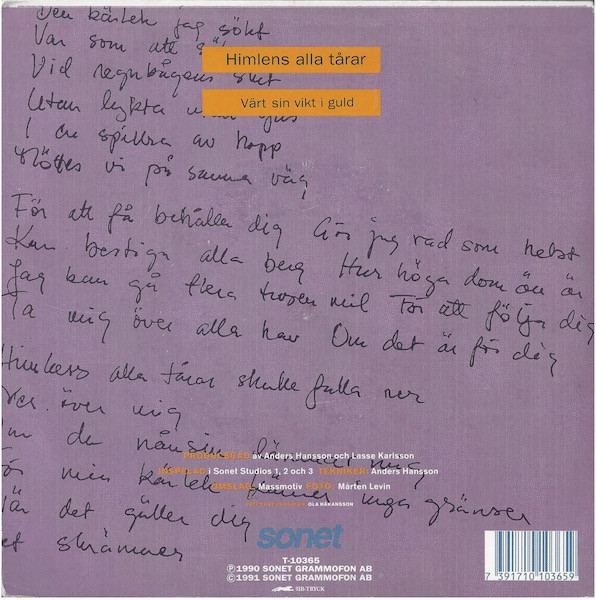 Den kärlek jag sökt
Var som att
Himlens alla tårar
Vid regnbågens slut
Utan lykta utan ljus
Värt sin vikt i guld
I en spillra av hopp
Möttes vi på samma väg,
För att få behålla dig Gör jag vad som helst
Kan bestiga alla berg Hur höga dom än är
Jag kan gå flera tusen mil För att följa dig
Ta mig över alla hav Om det är för dig
Himlens alla tårar skulle falla ner
Ner över mig
Om du nånsin lämnar mig
PRODUCERAD av Anders Hansson och Lasse Karlsson
INSPELAD i Sonet Studios 1, 2 och 3 TEKNIKER: Anders Hansson
För min kärlek känner inga gränser
OMSLAG: Massmotiv FOTO: Mårten Levin
OLA HÅKANSSON
När det gäller dig
et skrämmer
sonet
T-10365
Ⓟ1990 SONET GRAMMOFON AB
©1991 SONET GRAMMOFON AB
SIB-TRYCK
7 391710 103659